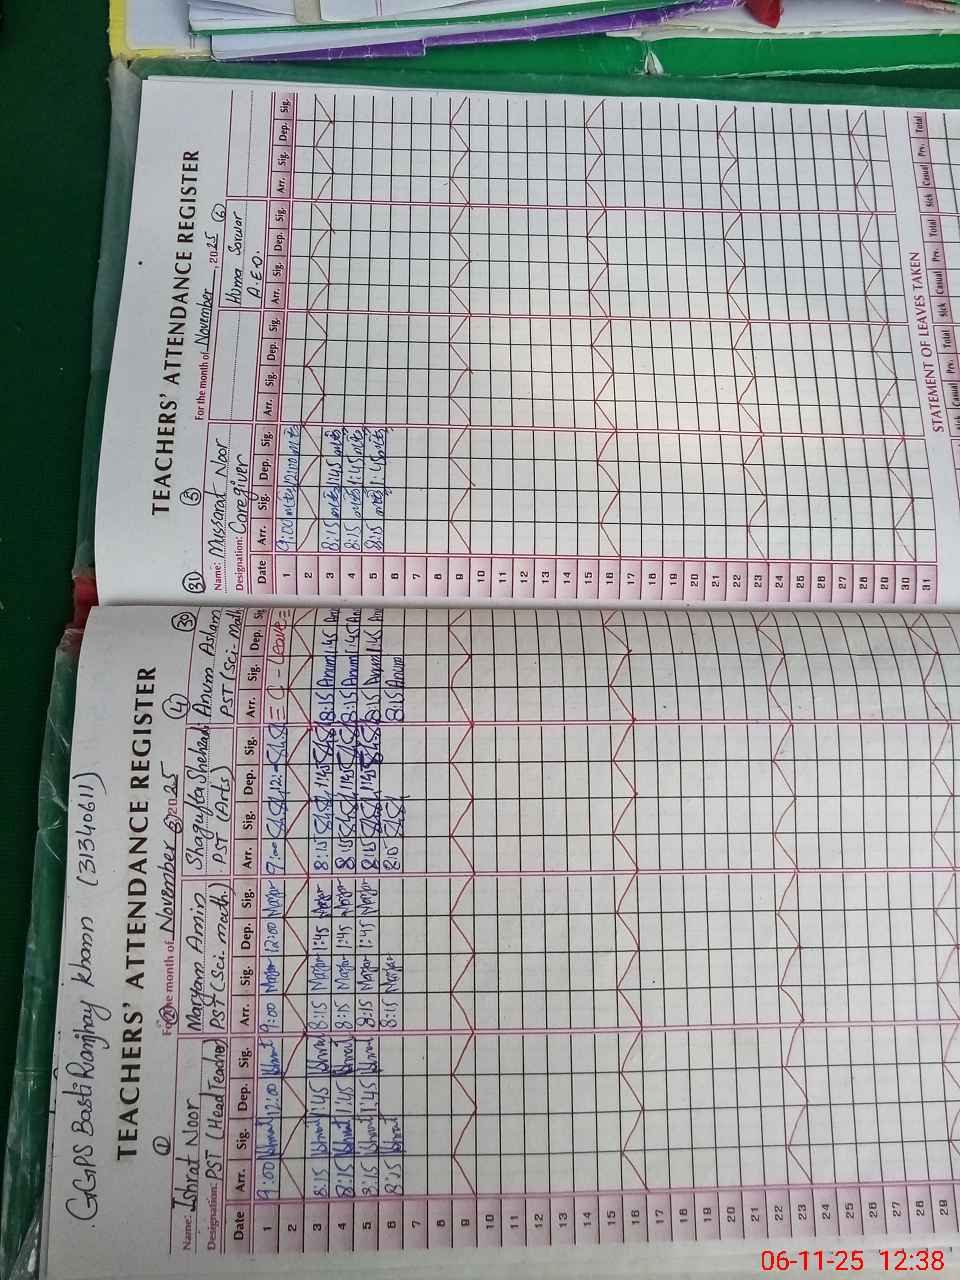 GGPS Basti Ranjhay Khan (31340611)
TEACHERS' ATTENDANCE REGISTER
For the month of November 2025
① ② ③ ④ 30
Name: Ishrat Noor Maryam Amin Shagufta Shehzadi Anum Aslam
Designation: PST (Head Teacher) PST (Sci. math) PST (Arts) PST (Sci. Math)
Date Arr. Sig. Dep. Sig. Arr. Sig. Dep. Sig. Arr. Sig. Dep. Sig. Arr. Sig. Dep. Sig
1 9:00 Ishrat 12:00 Ishrat 9:00 12:00 9:00 12:- = C - Leave =
2
3 8:15 Ishrat 1:45 Ishrat 8:15 1:45 8:15 1:45 8:15 Anum 1:45
4 8:15 Ishrat 1:45 Ishrat 8:15 1:45 8:15 1:45 8:15 Anum 1:45
5 8:15 Ishrat 1:45 Ishrat 8:15 1:45 8:15 1:45 8:15 Anum 1:45
6 8:15 Ishrat 8:15 8:15 8:15 Anum
7
8
9
10
11
12
13
14
15
16
17
18
19
20
21
22
23
24
25
26
27
28
29
TEACHERS' ATTENDANCE REGISTER
31 ⑤ For the month of November, 2025 ⑥
Name: Mussarat Noor Huma Sarwar
Designation: Caregiver A.E.O.
Date Arr. Sig. Dep. Sig. Arr. Sig. Dep. Sig. Arr. Sig. Dep. Sig. Arr. Sig. Dep. Sig.
1 9:00 12:00
2
3 8:15 1:45
4 8:15 1:45
5 8:15 1:45
6
7
8
9
10
11
12
13
14
15
16
17
18
19
20
21
22
23
24
25
26
27
28
29
30
31
STATEMENT OF LEAVES TAKEN
Casual Prv. Total Sick Casual Prv. Total Sick Casual Prv. Total
06-11-25 12:38